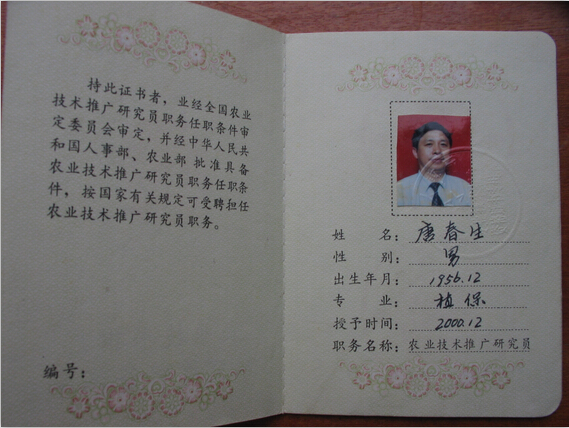 持此证书者，业经全国农业
技术推广研究员职务任职条件审
定委员会审定，并经中华人民共
和国人事部、农业部 批准具备
农业技术推广研究员职务任职条
件，按国家有关规定可受聘担任
农业技术推广研究员职务。
编号：
姓 名：唐春生
性 别：男
出生年月：1956.12
专 业：植保
授予时间：2000.12
职务名称：农业技术推广研究员